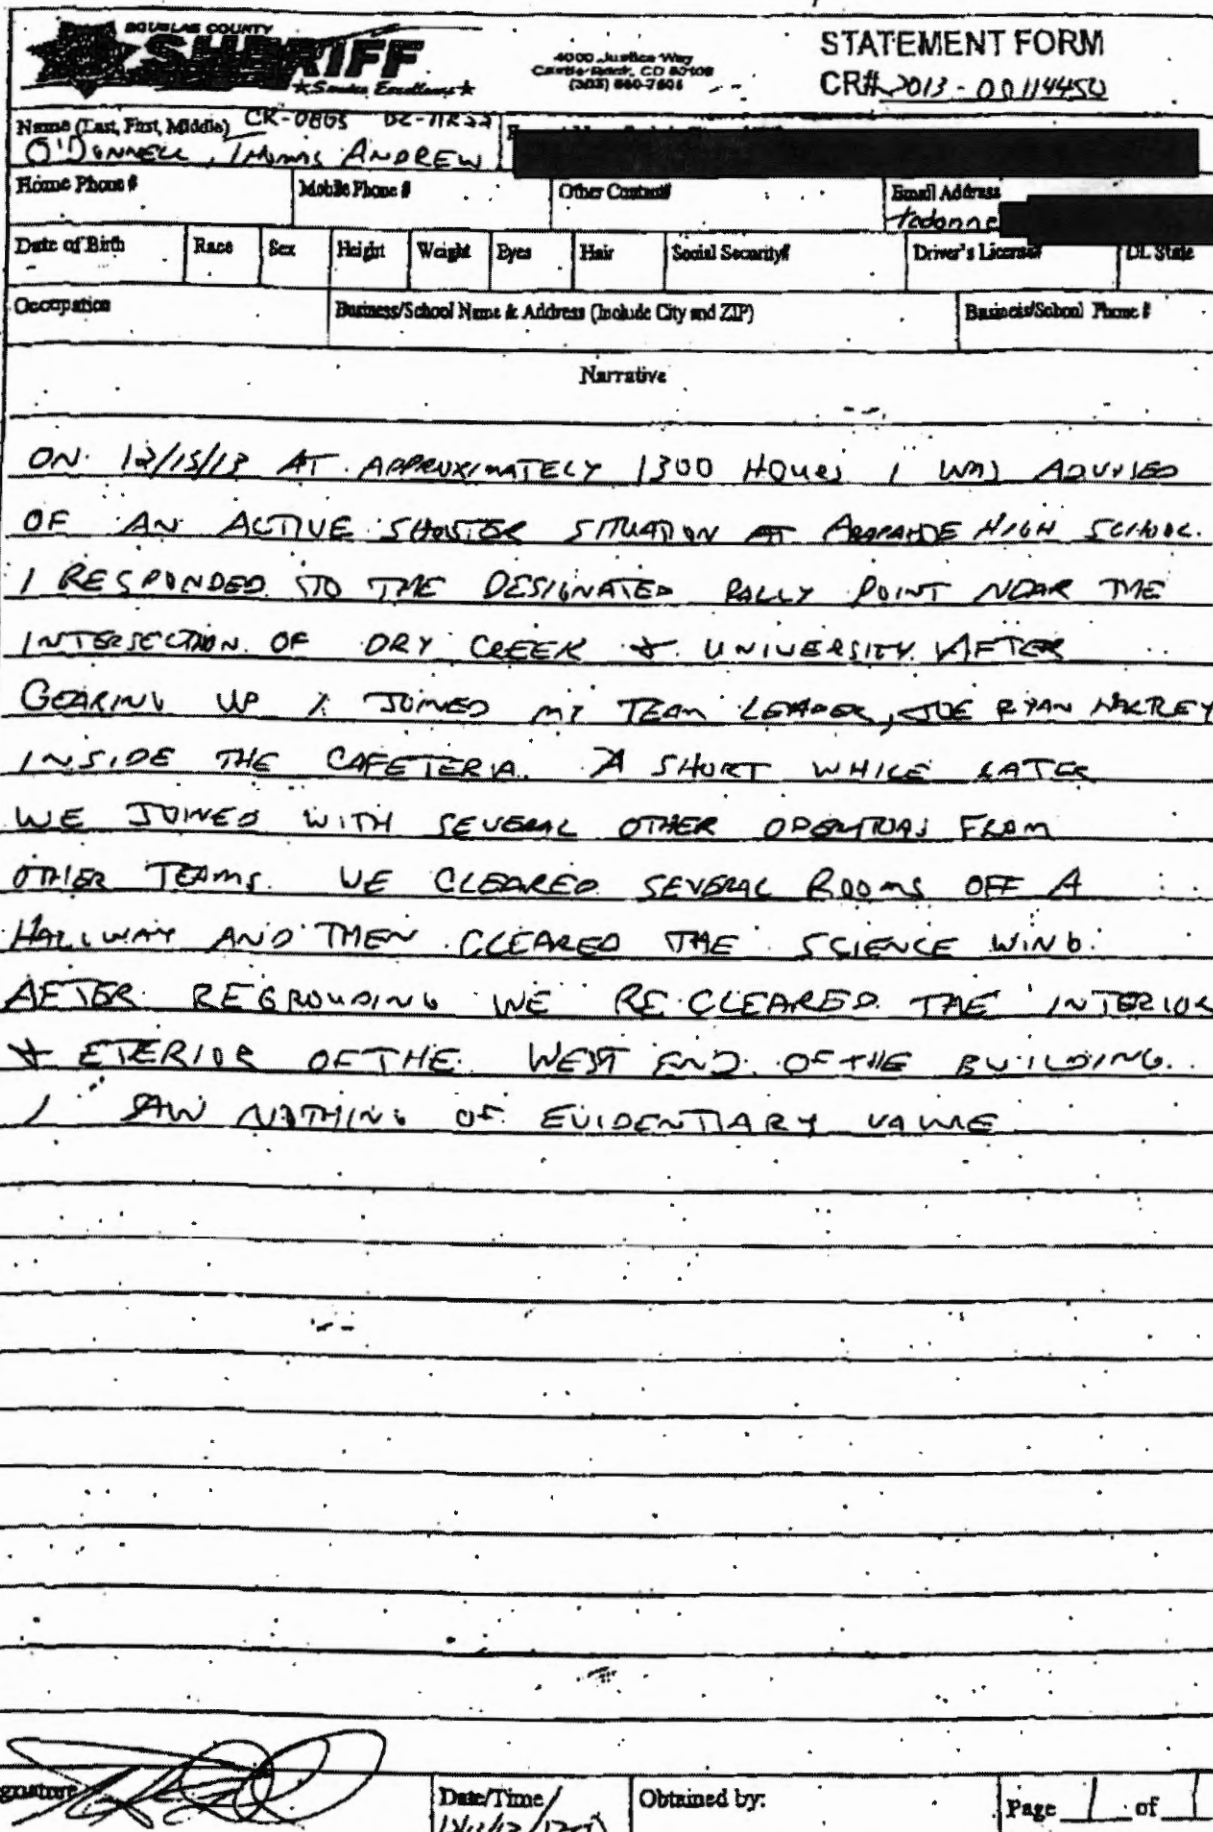 DOUGLAS COUNTY
SHERIFF
★ Service Excellence ★
4000 Justice Way
Castle Rock, CO 80109
(303) 660-7505
STATEMENT FORM
CR# 2013-00114450
Name (Last, First, Middle) CK-0865
O'DONNELL, THOMAS ANDREW
Home Phone #
Mobile Phone #
Other Contact#
Email Address
todonne
Date of Birth
Race
Sex
Height
Weight
Eyes
Hair
Social Security#
Driver's License#
DL State
Occupation
Business/School Name & Address (Include City and ZIP)
Business/School Phone #
Narrative
ON 12/15/13 AT APPROXIMATELY 1300 HOURS I WAS ADVISED
OF AN ACTIVE SHOOTER SITUATION AT ARAPAHOE HIGH SCHOOL.
I RESPONDED TO THE DESIGNATED RALLY POINT NEAR THE
INTERSECTION OF DRY CREEK & UNIVERSITY. AFTER
GEARING UP I JOINED MY TEAM LEADER, RYAN
INSIDE THE CAFETERIA. A SHORT WHILE LATER
WE JOINED WITH SEVERAL OTHER OPERATORS FROM
OTHER TEAMS. WE CLEARED SEVERAL ROOMS OFF A
HALLWAY AND THEN CLEARED THE SCIENCE WING.
AFTER REGROUPING WE RE-CLEARED THE INTERIOR
& ETERIOR OF THE WEST END OF THE BUILDING.
I SAW NOTHING OF EVIDENTIARY VALUE
Date/Time
Obtained by:
Page 1 of 1